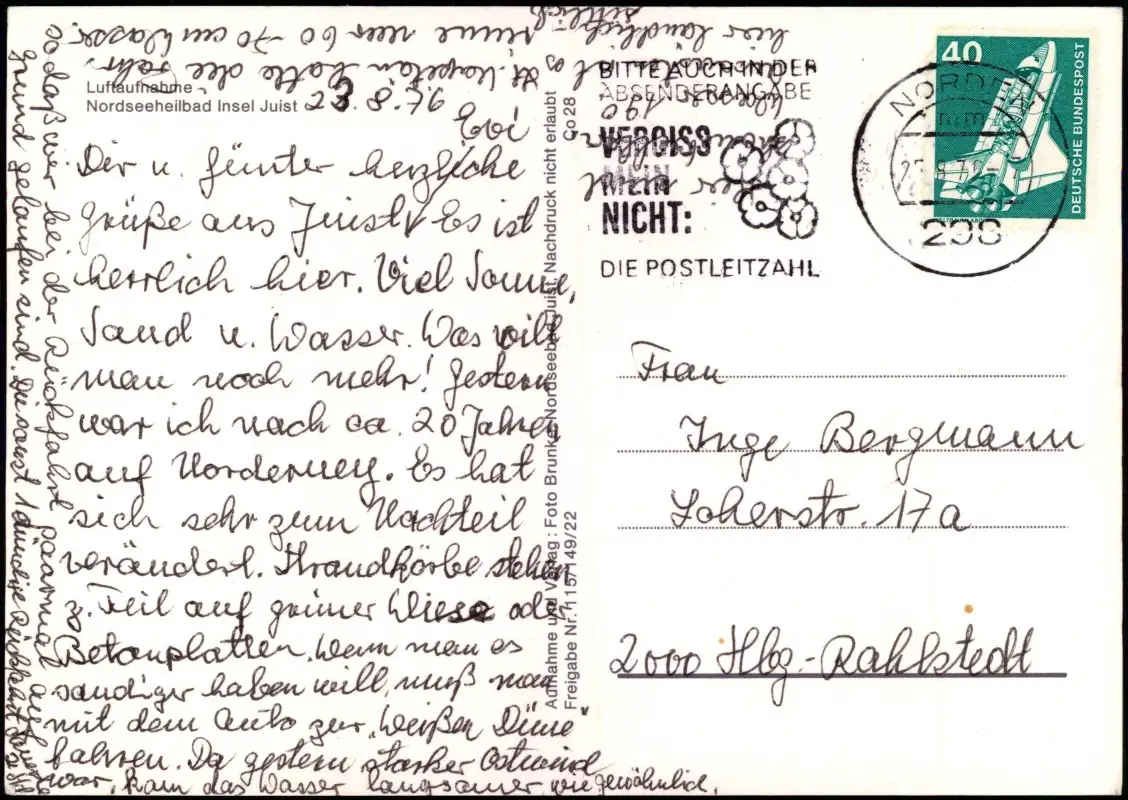 Luftaufnahme
Nordseeheilbad Insel Juist
23.8.76
Evi
Dir u. Günter herzliche
Grüße aus Juist. Es ist
herrlich hier. Viel Sonne,
Sand u. Wasser. Was will
man noch mehr! Gestern
war ich nach ca. 20 Jahren
auf Norderney. Es hat
sich sehr zum Nachteil
verändert. Strandkörbe stehen
z. Teil auf grüner Wiese oder
Betonplatten. Wenn man es
sandiger haben will, muß man
mit dem Auto zur „Weißen Düne“
fahren. Da gestern starker Ostwind
war, kam das Wasser langsamer wie gewöhnlich,
sodaß wir bei der Rückfahrt paarmal auf
Grund gelaufen sind. Die sonst 1stündige Rückfahrt dauerte
lt. Kapitän hatte die
Rinne nur 60-70 cm Wasser.
hier ländlich
sittlich
Aufnahme und Verlag: Foto Brunke, Nordseebad Juist, Nachdruck nicht erlaubt
Freigabe Nr. 115/149/22
Co 28
BITTE AUCH IN DER
ABSENDERANGABE
VERGISS
MEIN
NICHT:
DIE POSTLEITZAHL
40
DEUTSCHE BUNDESPOST
298
Frau
Inge Bergmann
Loherstr. 17a
2000 Hbg.-Rahlstedt